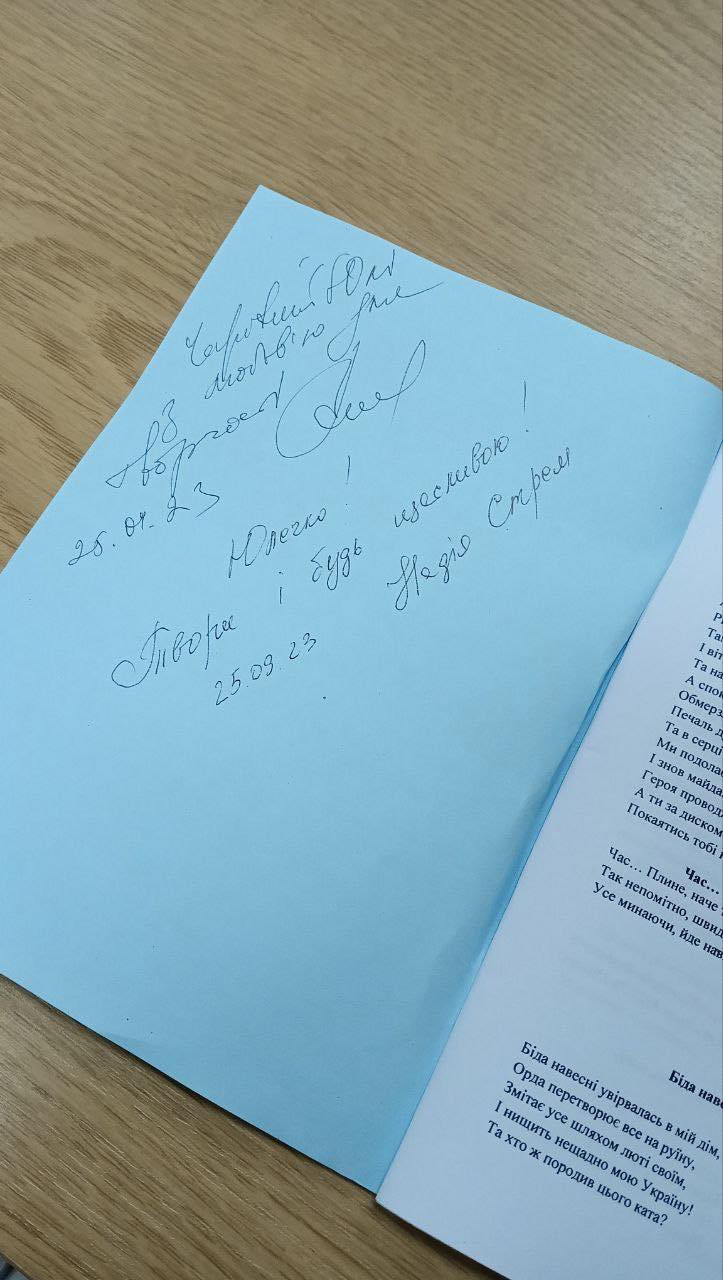 Чарівній Юлі
З любов'ю для
творчості
25.09.23
Юлечко!
Твори і будь щасливою!
25.09.23 Надія Стрем
Та
І віт
Та на
А спок
Обмерз
Печаль д
Та в серці
Ми подола
І знов майда
Героя провод
А ти за диском
Покаятись тобі
Час...
Час... Плине, наче
Так непомітно, швид
Усе минаючи, йде нав
Біда наве
Біда навесні увірвалась в мій дім,
Орда перетворює все на руїну,
Змітає усе шляхом люті своїм,
І нищить нещадно мою Україну!
Та хто ж породив цього ката?